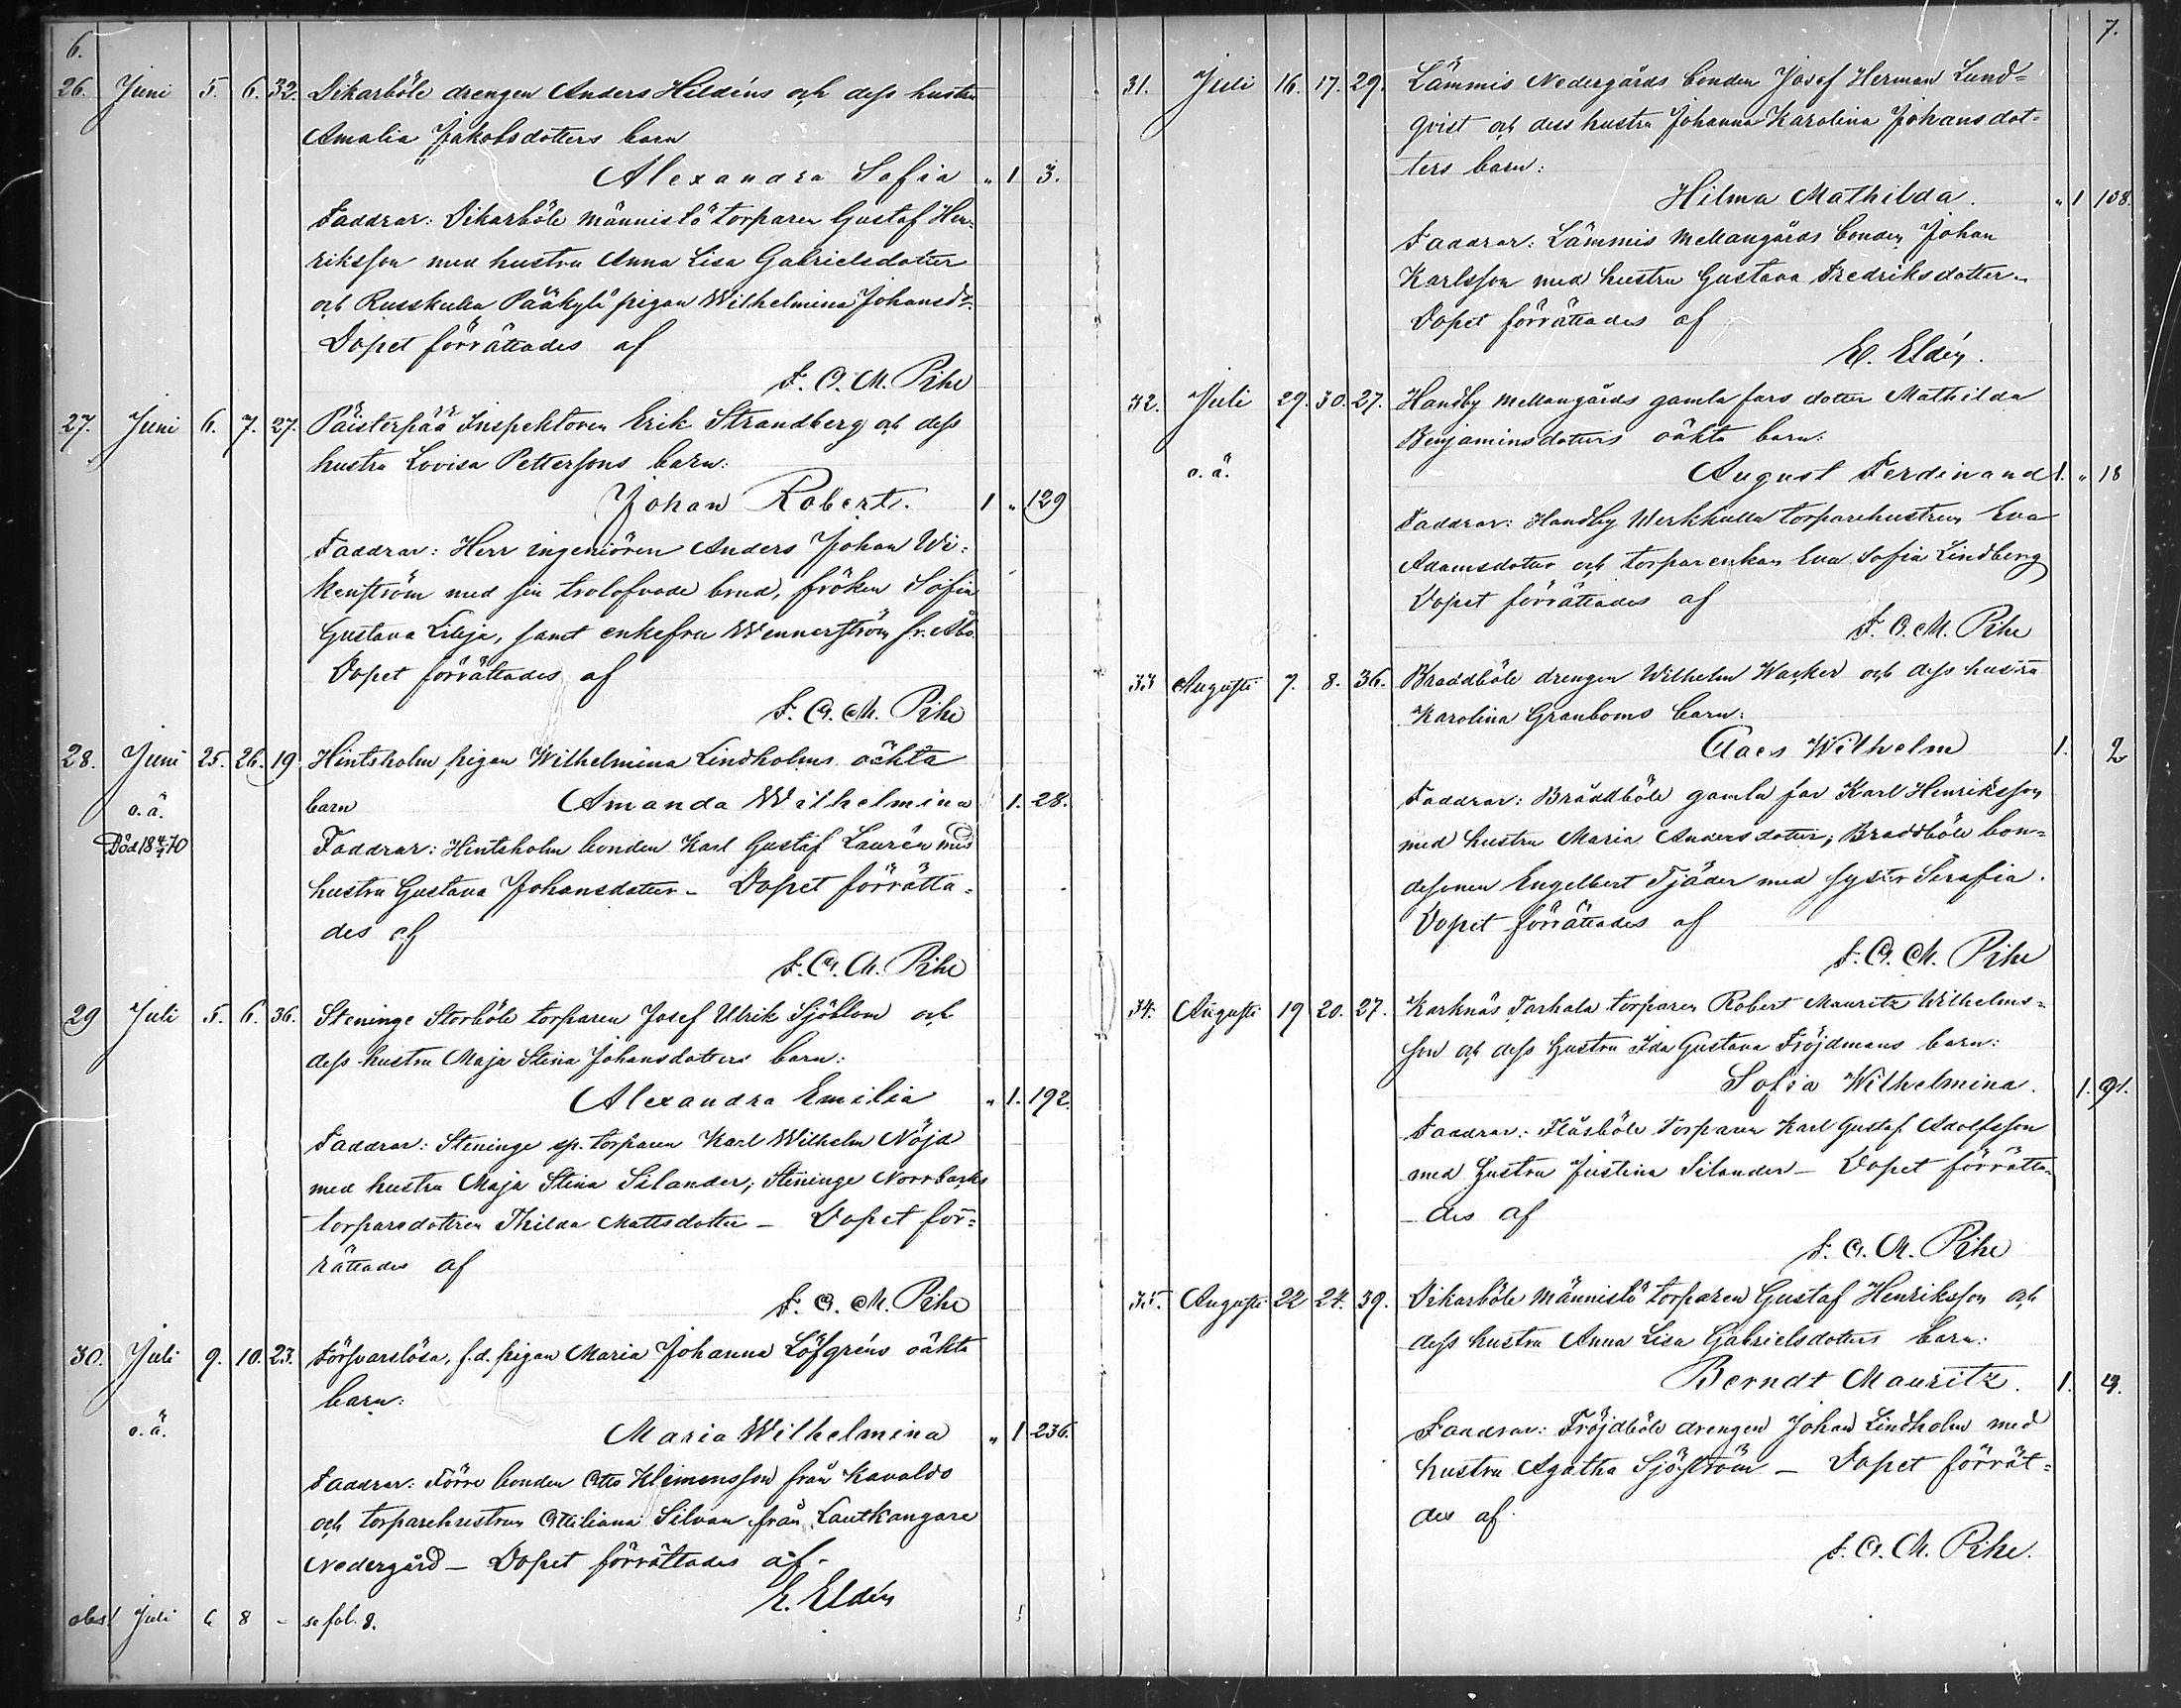 6.
26. Juni 5. 6. 32. Dikarböle drengen Anders Hildéns och dess hustru
Amalia Jakobsdotters barn
Alexandra Sofia „ 1 3.
Faddrar: Dikarböle Männistö torparen Gustaf Hen-
riksson med hustru Anna Lisa Gabrielsdotter
och Russkulla Pääkylä pigan Wilhelmina Johansdr.
Dopet förrättades af
F. O. M. Pihe
27. Juni 6. 7. 27. Päisterpää Inspektoren Erik Strandberg och dess
hustru Lovisa Petterssons barn:
Johan Robert. 1 „ 129
Faddrar: Herr ingeniören Anders Johan Wi-
kenström med sin trolofvade brud, fröken Sofia
Gustava Lilja, samt enkefru Wennerström fr. Åbo.
Dopet förrättades af
F. O. M. Pihe
28. Juni 25. 26. 19 Hintsholm pigan Wilhelmina Lindholms oäkta
o.ä. barn Amanda Wilhelmina 1. 28.
Död 18 70 Faddrar: Hintsholm bonden Karl Gustaf Laurén med
hustru Gustava Johansdotter – Dopet förrätta-
des af
F. O. M. Pihe
29 Juli 5. 6. 36. Steninge Storböle torparen Josef Ulrik Sjöblom och
dess hustru Maja Stina Johansdotters barn:
Alexandra Emilia „ 1. 192.
Faddrar: Steninge sp. torparen Karl Wilhelm Nöjd
med hustru Maja Stina Silander; Steninge Norrbacka
torparedottren Thilda Mattsdotter – Dopet för-
rättades af
F. O. M. Pihe
30. Juli 9. 10. 23. Försvarslösa, f.d. pigan Maria Johanna Löfgréns oäkta
barn:
o.ä. Maria Wilhelmina „ 1 236.
Faddrar: Förre bonden Otto Klemensson från Kavaldo
och torparehustrun Ottiliana Silvan från Lautkangare
Nedergård – Dopet förrättades af
E. Eldén
obs! Juli 6 8 – se fol. 8.
7.
31. Juli 16. 17. 29. Lämmis Nedergårds bonden Josef Herman Lund-
qvist och dess hustru Johanna Karolina Johansdot-
ters barn:
Hilma Mathilda. „ 1 108.
Faddrar: Lämmis Mellangårds bonden Johan
Karlsson med hustru Gustava Fredriksdotter.
Dopet förrättades af
E. Eldén.
32. Juli 29. 30. 27. Handby Mellangårds gamla fars dotter Mathilda
Benjaminsdotters oäkta barn:
o.ä. August Ferdinand 1. „ 18
Faddrar: Handby Werkkulla torparehustrun Eva
Adamsdotter och torparenkan Eva Sofia Lindberg
Dopet förrättades af
F. O. M. Pihe
33 Augusti 7. 8. 36. Braddböle drengen Wilhelm Wacker och dess hustru
Karolina Granboms barn:
Claes Wilhelm 1. 2
Faddrar: Braddböle gamla far Karl Henriksson
med hustru Maria Andersdotter; Braddböle bon-
desonen Engelbert Tjäder med syster Serafia.
Dopet förrättades af
F. O. M. Pihe
34. Augusti 19 20. 27. Karknäs Tarhala torparen Robert Mauritz Wilhelms-
son och dess hustru Ida Gustava Fröjdmans barn:
Sofia Wilhelmina. 1. 91.
Faddrar: Flåsböle Torparen Karl Gustaf Adolfsson
med hustru Justina Silander – Dopet förrätta-
des af
F. O. M. Pihe
35. Augusti 22 24. 39. Dikarböle Männistö torparen Gustaf Henriksson och
dess hustru Anna Lisa Gabrielsdotters barn:
Berndt Mauritz. 1. 4.
Faddrar: Fröjdböle drengen Johan Lindholm med
hustru Agatha Sjöström – Dopet förrät-
des af
F. O. M. Pihe.